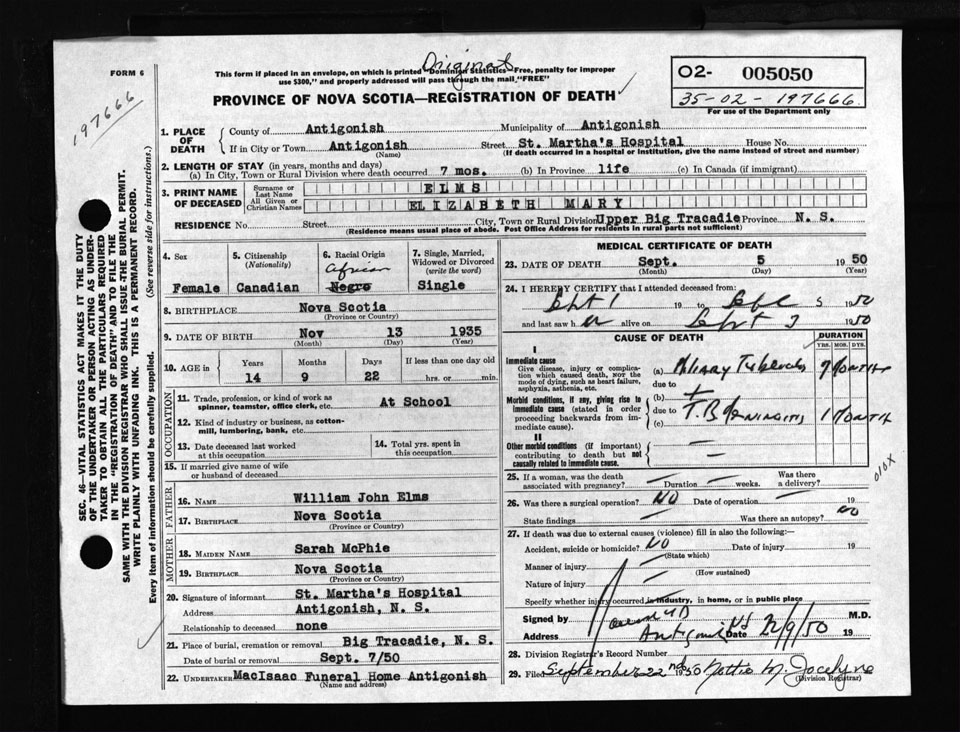 Original
FORM 6
This form if placed in an envelope, on which is printed "Dominion Statistics—Free, penalty for improper
use $300," and properly addressed will pass through the mail, "FREE"
PROVINCE OF NOVA SCOTIA—REGISTRATION OF DEATH
O2- 005050
35-02-197666
For use of the Department only
197666
SEC. 46—VITAL STATISTICS ACT MAKES IT THE DUTY
OF THE UNDERTAKER OR PERSON ACTING AS UNDER-
TAKER TO OBTAIN ALL THE PARTICULARS REQUIRED
IN THE "REGISTRATION OF DEATH" AND TO FILE THE
SAME WITH THE DIVISION REGISTRAR WHO SHALL ISSUE THE BURIAL PERMIT.
WRITE PLAINLY WITH UNFADING INK. THIS IS A PERMANENT RECORD.
Every item of information should be carefully supplied. (See reverse side for instructions.)
1. PLACE OF DEATH County of Antigonish Municipality of Antigonish
If in City or Town Antigonish Street St. Martha's Hospital House No.
(Name) (If death occurred in a hospital or institution, give the name instead of street and number)
2. LENGTH OF STAY (in years, months and days)
(a) In City, Town or Rural Division where death occurred 7 mos. (b) In Province life (c) In Canada (if immigrant)
3. PRINT NAME OF DECEASED Surname or Last Name ELMS
All Given or Christian Names ELIZABETH MARY
RESIDENCE No. Street City, Town or Rural Division Upper Big Tracadie Province N. S.
(Residence means usual place of abode. Post Office Address for residents in rural parts not sufficient)
4. Sex Female
5. Citizenship (Nationality) Canadian
6. Racial Origin African Negro
7. Single, Married, Widowed or Divorced (write the word) Single
8. BIRTHPLACE Nova Scotia
(Province or Country)
9. DATE OF BIRTH Nov 13 1935
(Month) (Day) (Year)
10. AGE in Years Months Days If less than one day old
14 9 22 hrs. or min.
OCCUPATION
11. Trade, profession, or kind of work as spinner, teamster, office clerk, etc. At School
12. Kind of industry or business, as cotton-mill, lumbering, bank, etc.
13. Date deceased last worked at this occupation
14. Total yrs. spent in this occupation
15. If married give name of wife or husband of deceased
FATHER
16. NAME William John Elms
17. BIRTHPLACE Nova Scotia
(Province or Country)
MOTHER
18. MAIDEN NAME Sarah McPhie
19. BIRTHPLACE Nova Scotia
(Province or Country)
20. Signature of informant St. Martha's Hospital
Address Antigonish, N. S.
Relationship to deceased none
21. Place of burial, cremation or removal Big Tracadie, N. S.
Date of burial or removal Sept. 7/50
22. UNDERTAKER MacIsaac Funeral Home Antigonish
(Name and address)
MEDICAL CERTIFICATE OF DEATH
23. DATE OF DEATH Sept. 5 1950
(Month) (Day) (Year)
24. I HEREBY CERTIFY that I attended deceased from:
Sept 1 19 to Sept 5 1950
and last saw h er alive on Sept 3 1950
CAUSE OF DEATH DURATION
YRS. MOS. DYS.
I
Immediate cause
Give disease, injury or complication which caused death, NOT the mode of dying, such as heart failure, asphyxia, asthenia, etc.
(a) Miliary Tuberculosis 7 Month
due to
Morbid conditions, if any, giving rise to immediate cause (stated in order proceeding backwards from immediate cause).
(b) +
due to T.B. Meningitis 1 Month
(c)
II
Other morbid conditions (if important) contributing to death but not causally related to immediate cause.
010X
25. If a woman, was the death associated with pregnancy? Duration weeks. Was there a delivery?
26. Was there a surgical operation? NO Date of operation 19
State findings Was there an autopsy? NO
27. If death was due to external causes (violence) fill in also the following:—
Accident, suicide or homicide? NO Date of injury 19
(State which)
Manner of injury
(How sustained)
Nature of injury
Specify whether injury occurred in industry, in home, or in public place
Signed by M.D.
Address Antigonish Date 2/9/50 19
28. Division Registrar's Record Number
29. Filed September 22nd 1950 Lottie M. Jocelyne
(Division Registrar)